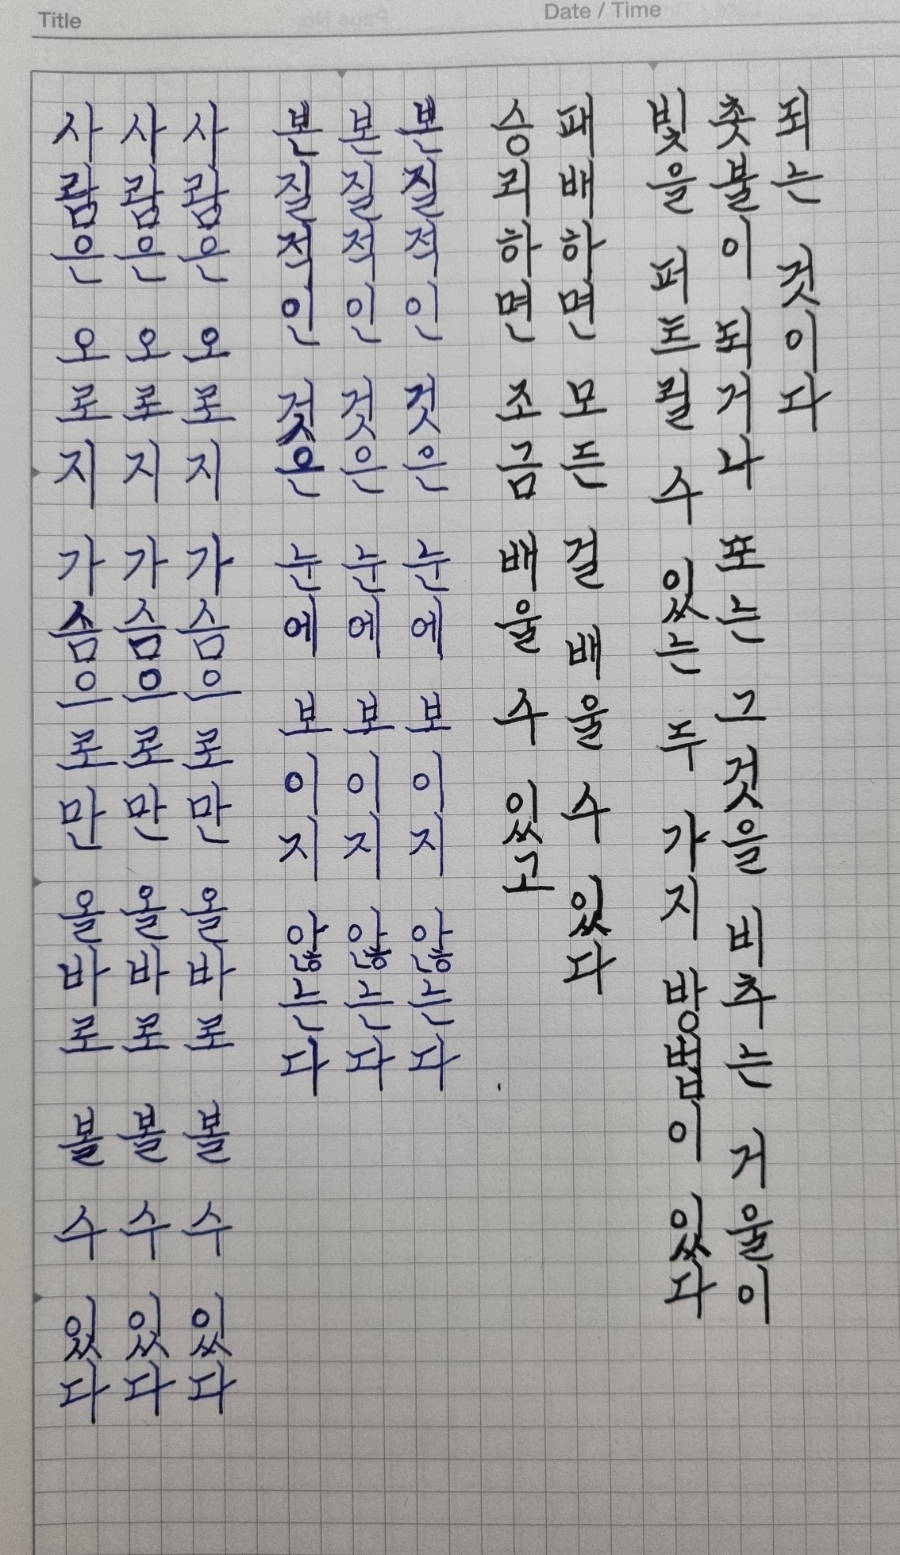 Title
Date / Time
사람은 오로지 가슴으로만 올바로 볼 수 있다
사람은 오로지 가슴으로만 올바로 볼 수 있다
사람은 오로지 가슴으로만 올바로 볼 수 있다
본질적인 것은 눈에 보이지 않는다
본질적인 것은 눈에 보이지 않는다
본질적인 것은 눈에 보이지 않는다
승리하면 조금 배울 수 있고
패배하면 모든 걸 배울 수 있다
빛을 퍼트릴 수 있는 두 가지 방법이 있다
촛불이 되거나 또는 그것을 비추는 거울이
되는 것이다